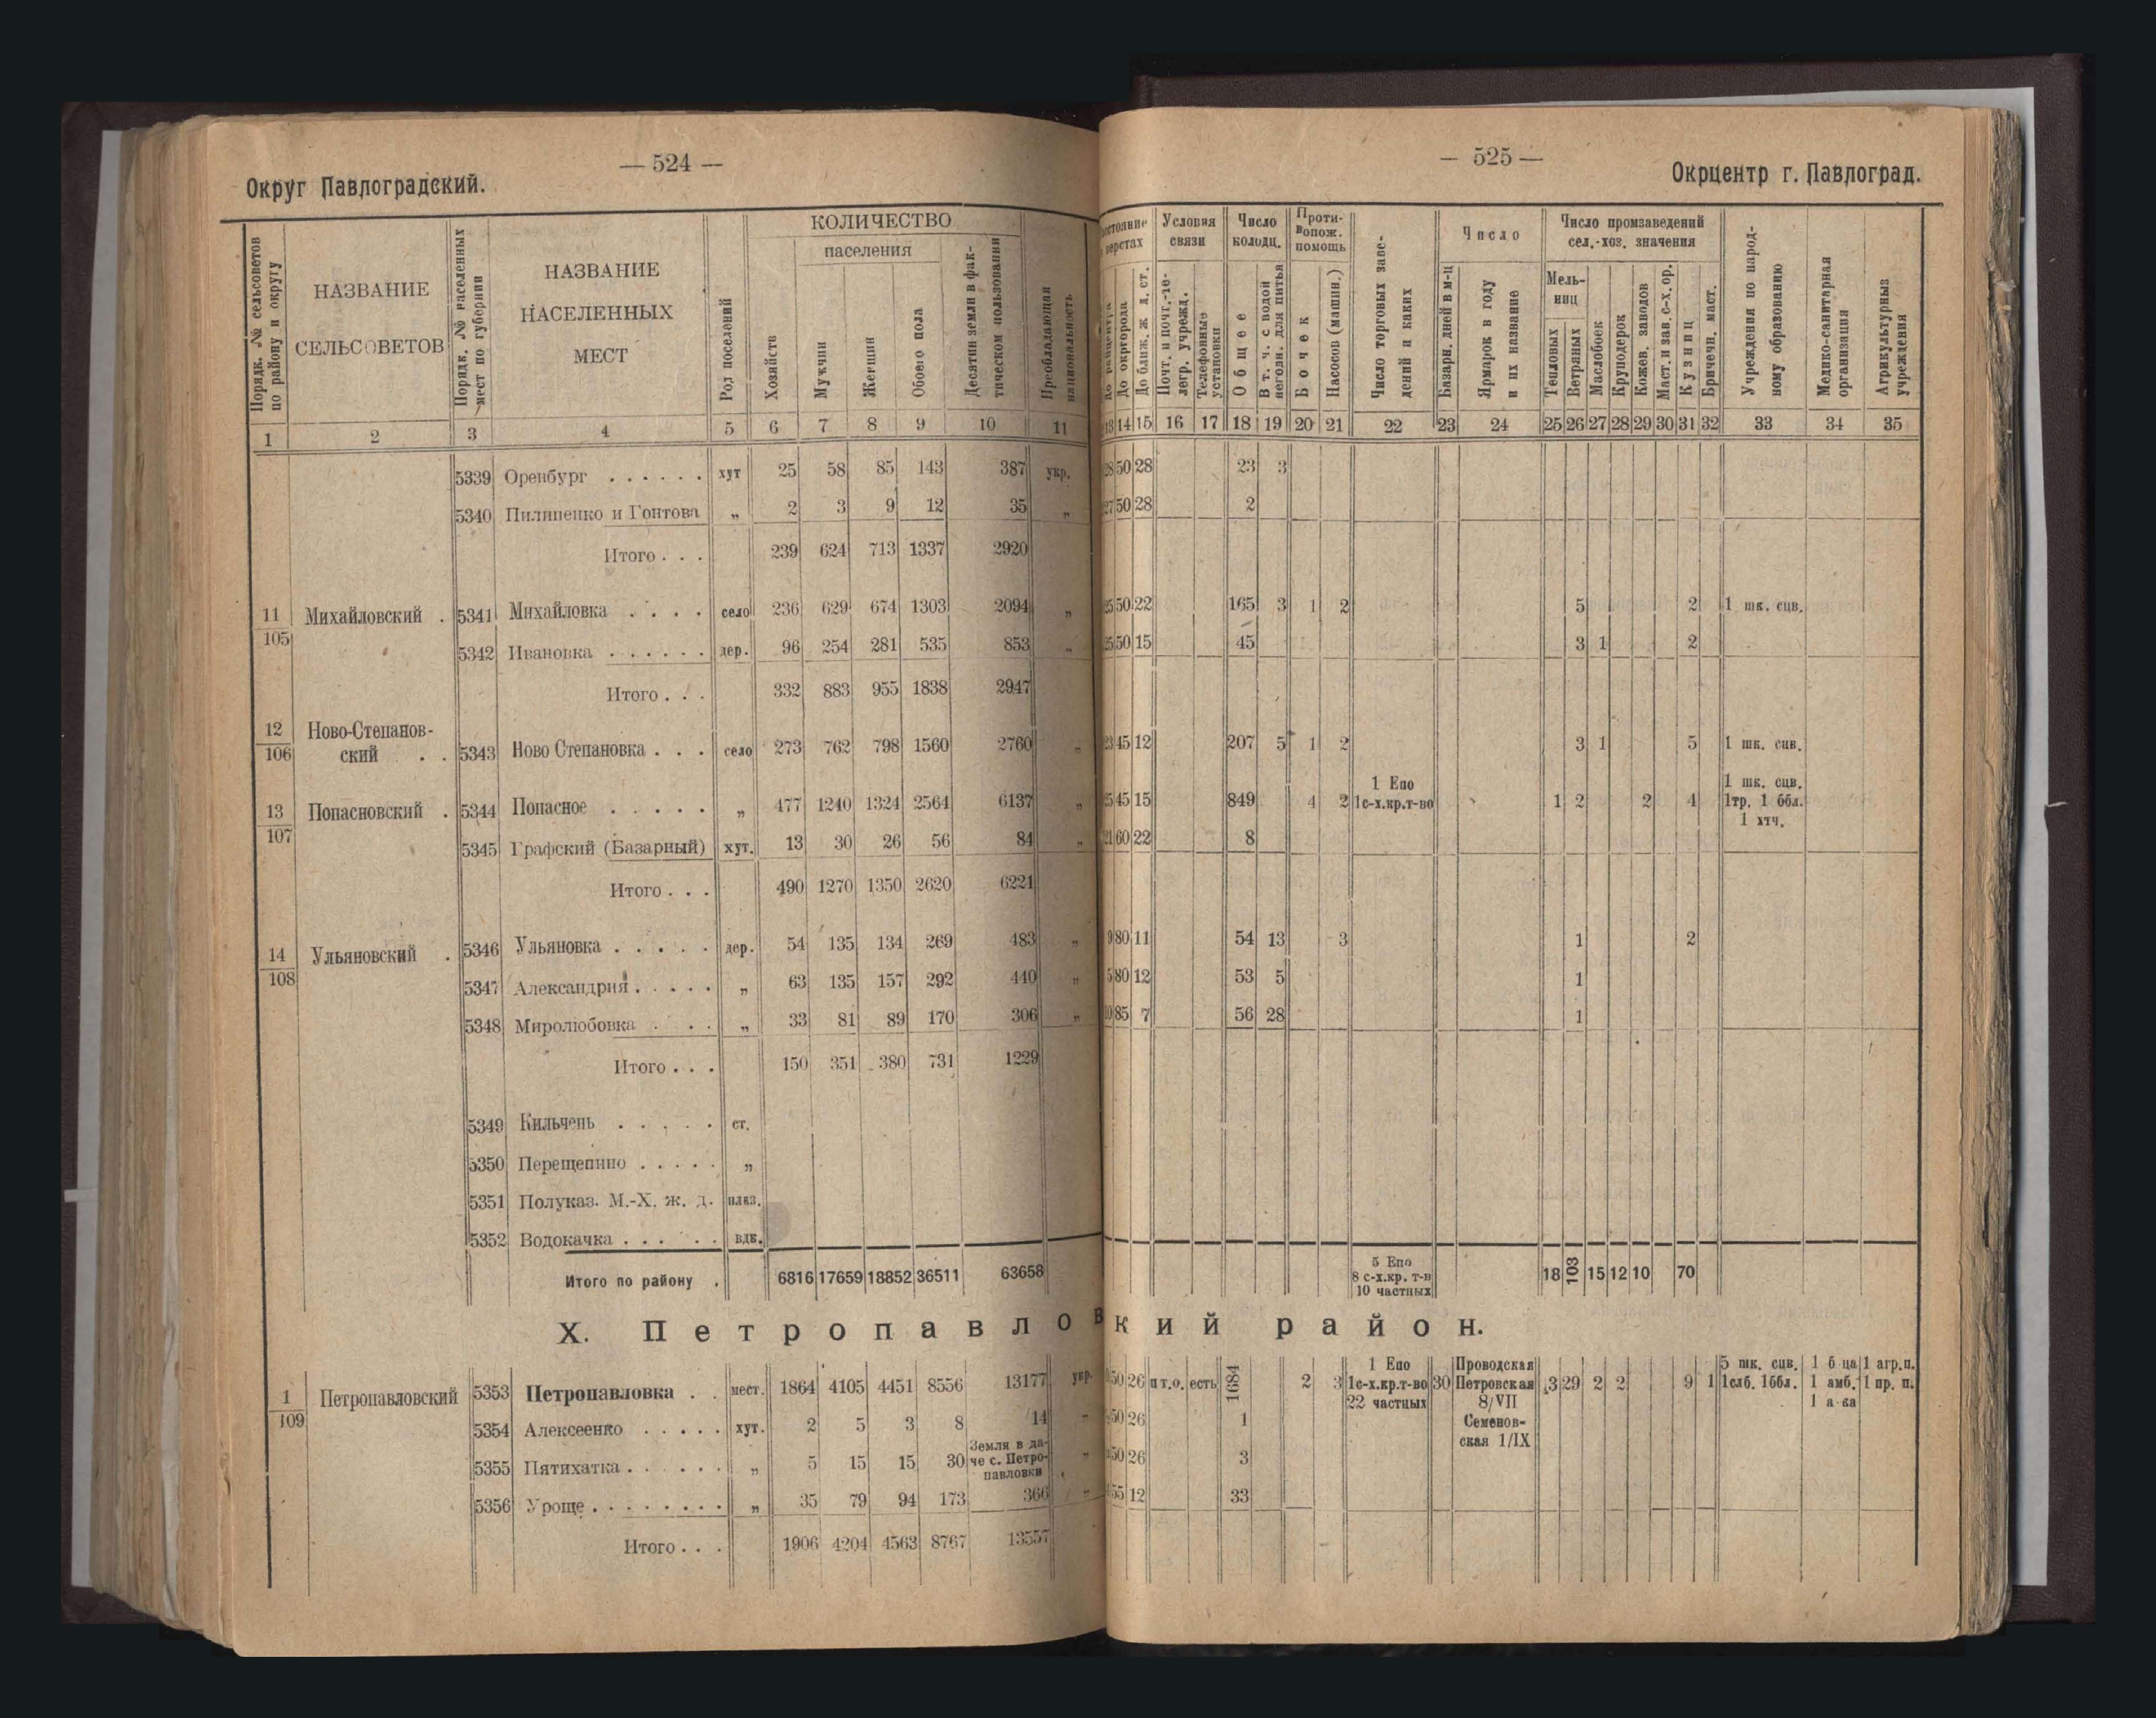 — 524 —
Округ Павлоградский.
Порядк. № сельсоветов по району и округу
НАЗВАНИЕ СЕЛЬСОВЕТОВ
Порядк. № населенных мест по губернии
НАЗВАНИЕ НАСЕЛЕННЫХ МЕСТ
Род поселений
КОЛИЧЕСТВО
Хозяйств
населения
Мужчин
Женщин
Обоего пола
Десятин земли в фактическом пользовании
Преобладающая национальность
1 2 3 4 5 6 7 8 9 10 11
5339 Оренбург . . . . . . хут 25 58 85 143 387 укр.
5340 Пилипенко и Гонтова „ 2 3 9 12 35 „
Итого . . . 239 624 713 1337 2920
11/105 Михайловский . 5341 Михайловка . . . . село 236 629 674 1303 2094 „
5342 Ивановка . . . . . . дер. 96 254 281 535 853 „
Итого . . . 332 883 955 1838 2947
12/106 Ново-Степанов-
ский . . 5343 Ново Степановка . . . село 273 762 798 1560 2760 „
13/107 Попасновский . 5344 Попасное . . . . . „ 477 1240 1324 2564 6137 „
5345 Графский (Базарный) хут. 13 30 26 56 84 „
Итого . . . 490 1270 1350 2620 6221
14/108 Ульяновский . 5346 Ульяновка . . . . . дер. 54 135 134 269 483 „
5347 Александрия . . . . . „ 63 135 157 292 440 „
5348 Миролюбовка . . . „ 33 81 89 170 306 „
Итого . . . 150 351 380 731 1229
5349 Кильчень . . . . . ст.
5350 Перещепино . . . . . „
5351 Полуказ. М.-Х. ж. д. . плаз.
5352 Водокачка . . . . . вдк.
Итого по району . 6816 17659 18852 36511 63658
X. Петропавловский район.
1/109 Петропавловский 5353 Петропавловка . . мест. 1864 4105 4451 8556 13177 укр.
5354 Алексеенко . . . . . хут. 2 5 3 8 14 „
5355 Пятихатка . . . . . . „ 5 15 15 30 Земля в да-
че с. Петро-
павловки „
5356 Уроще . . . . . . . . „ 35 79 94 173 366 „
Итого . . . 1906 4204 4563 8767 13557
— 525 —
Окрцентр г. Павлоград.
До окргорода
До ближ. ж. д. ст.
Условия связи
Почт. и почт.-телегр. учрежд.
Телефонные установки
Число колодц.
Общее
В т. ч. с водой негодн. для питья
Противопож. помощь
Бочек
Насосов (машин.)
Число торговых заведений и каких
Число
Базарн. дней в м-ц
Ярмарок в году и их название
Число промзаведений сел.-хоз. значения
Мельниц
Тепловых
Ветряных
Маслобоек
Круподерок
Кожев. заводов
Маст. и зав. с-х. ор.
Кузниц
Бричечн. маст.
Учреждения по народному образованию
Медико-санитарная организация
Агрикультурные учреждения
13 14 15 16 17 18 19 20 21 22 23 24 25 26 27 28 29 30 31 32 33 34 35
28 50 28 23 3
27 50 28 2
25 50 22 165 3 1 2 5 2 1 шк. сцв.
25 50 15 45 3 1 2
23 45 12 207 5 1 2 3 1 5 1 шк. сцв.
25 45 15 849 4 2 1 Епо
1с-х.кр.т-во 1 2 2 4 1 шк. сцв.
1тр. 1 ббл.
1 хтч.
21 60 22 8
9 80 11 54 13 3 1 2
5 80 12 53 5 1
10 85 7 56 28 1
5 Епо
8 с-х.кр. т-в
10 частных 18 103 15 12 10 70
50 26 п т.о. есть 1684 2 3 1 Епо
1с-х.кр.т-во
22 частных 30 Проводская
Петровская
8/VII
Семенов-
ская 1/IX 3 29 2 2 9 1 5 шк. сцв.
1слб. 1ббл. 1 б ца
1 амб.
1 а-ка 1 агр.п.
1 пр. п.
50 26 1
50 26 3
55 12 33